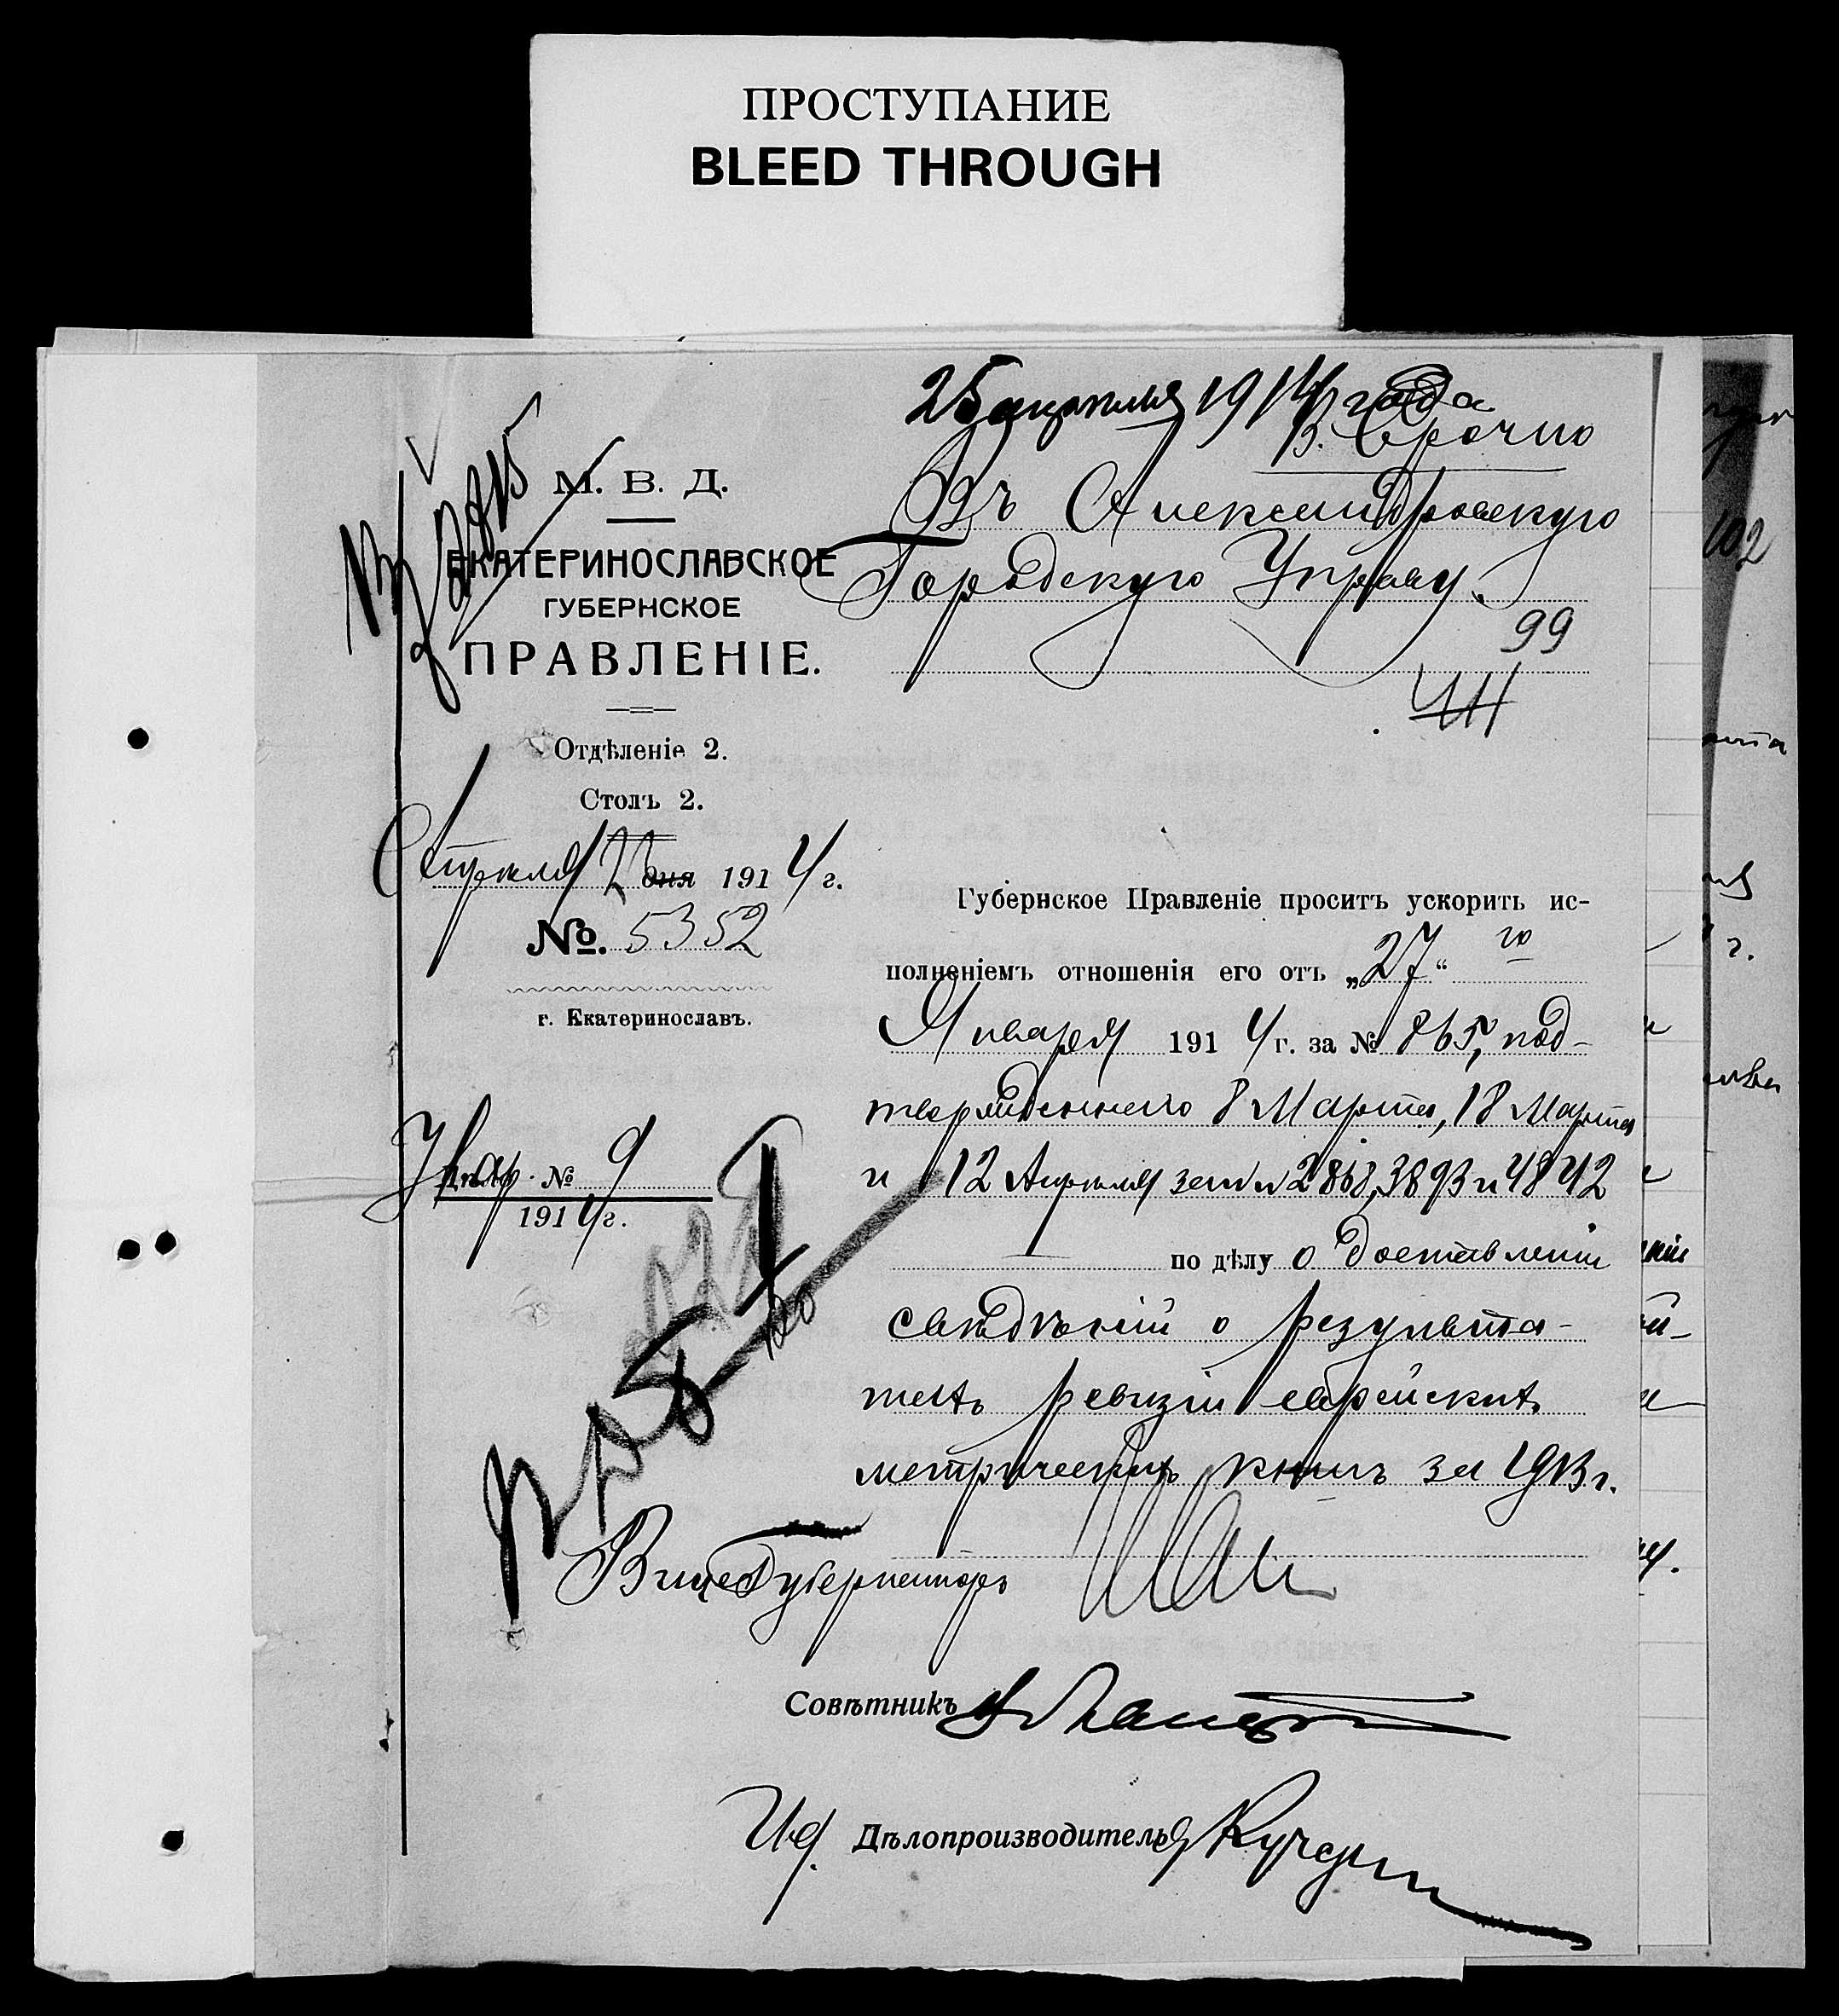 ПРОСТУПАНИЕ
BLEED THROUGH
25 апреля 1914 года
В. Срочно
М. В. Д.
ЕКАТЕРИНОСЛАВСКОЕ
ГУБЕРНСКОЕ
ПРАВЛЕНІЕ.
Отдѣленіе 2.
Столъ 2.
Апреля 2 дня 1914 г.
№. 5352
г. Екатеринославъ.
№ 9
1914 г.
Въ Александровскую
Городскую Управу.
99
Губернское Правленіе проситъ ускорить ис-
полненіемъ отношенія его отъ „27“ го
Января 1914 г. за № 865, под-
твержденнаго 8 Марта, 18 Марта
и 12 Апреля за №№ 2868, 3893 и 4842
по дѣлу о доставленіи
свѣдѣній о результа-
тахъ ревизіи еврейскихъ
метрическихъ книгъ за 1913 г.
Вице Губернаторъ
Совѣтникъ
И.д. Дѣлопроизводитель
102